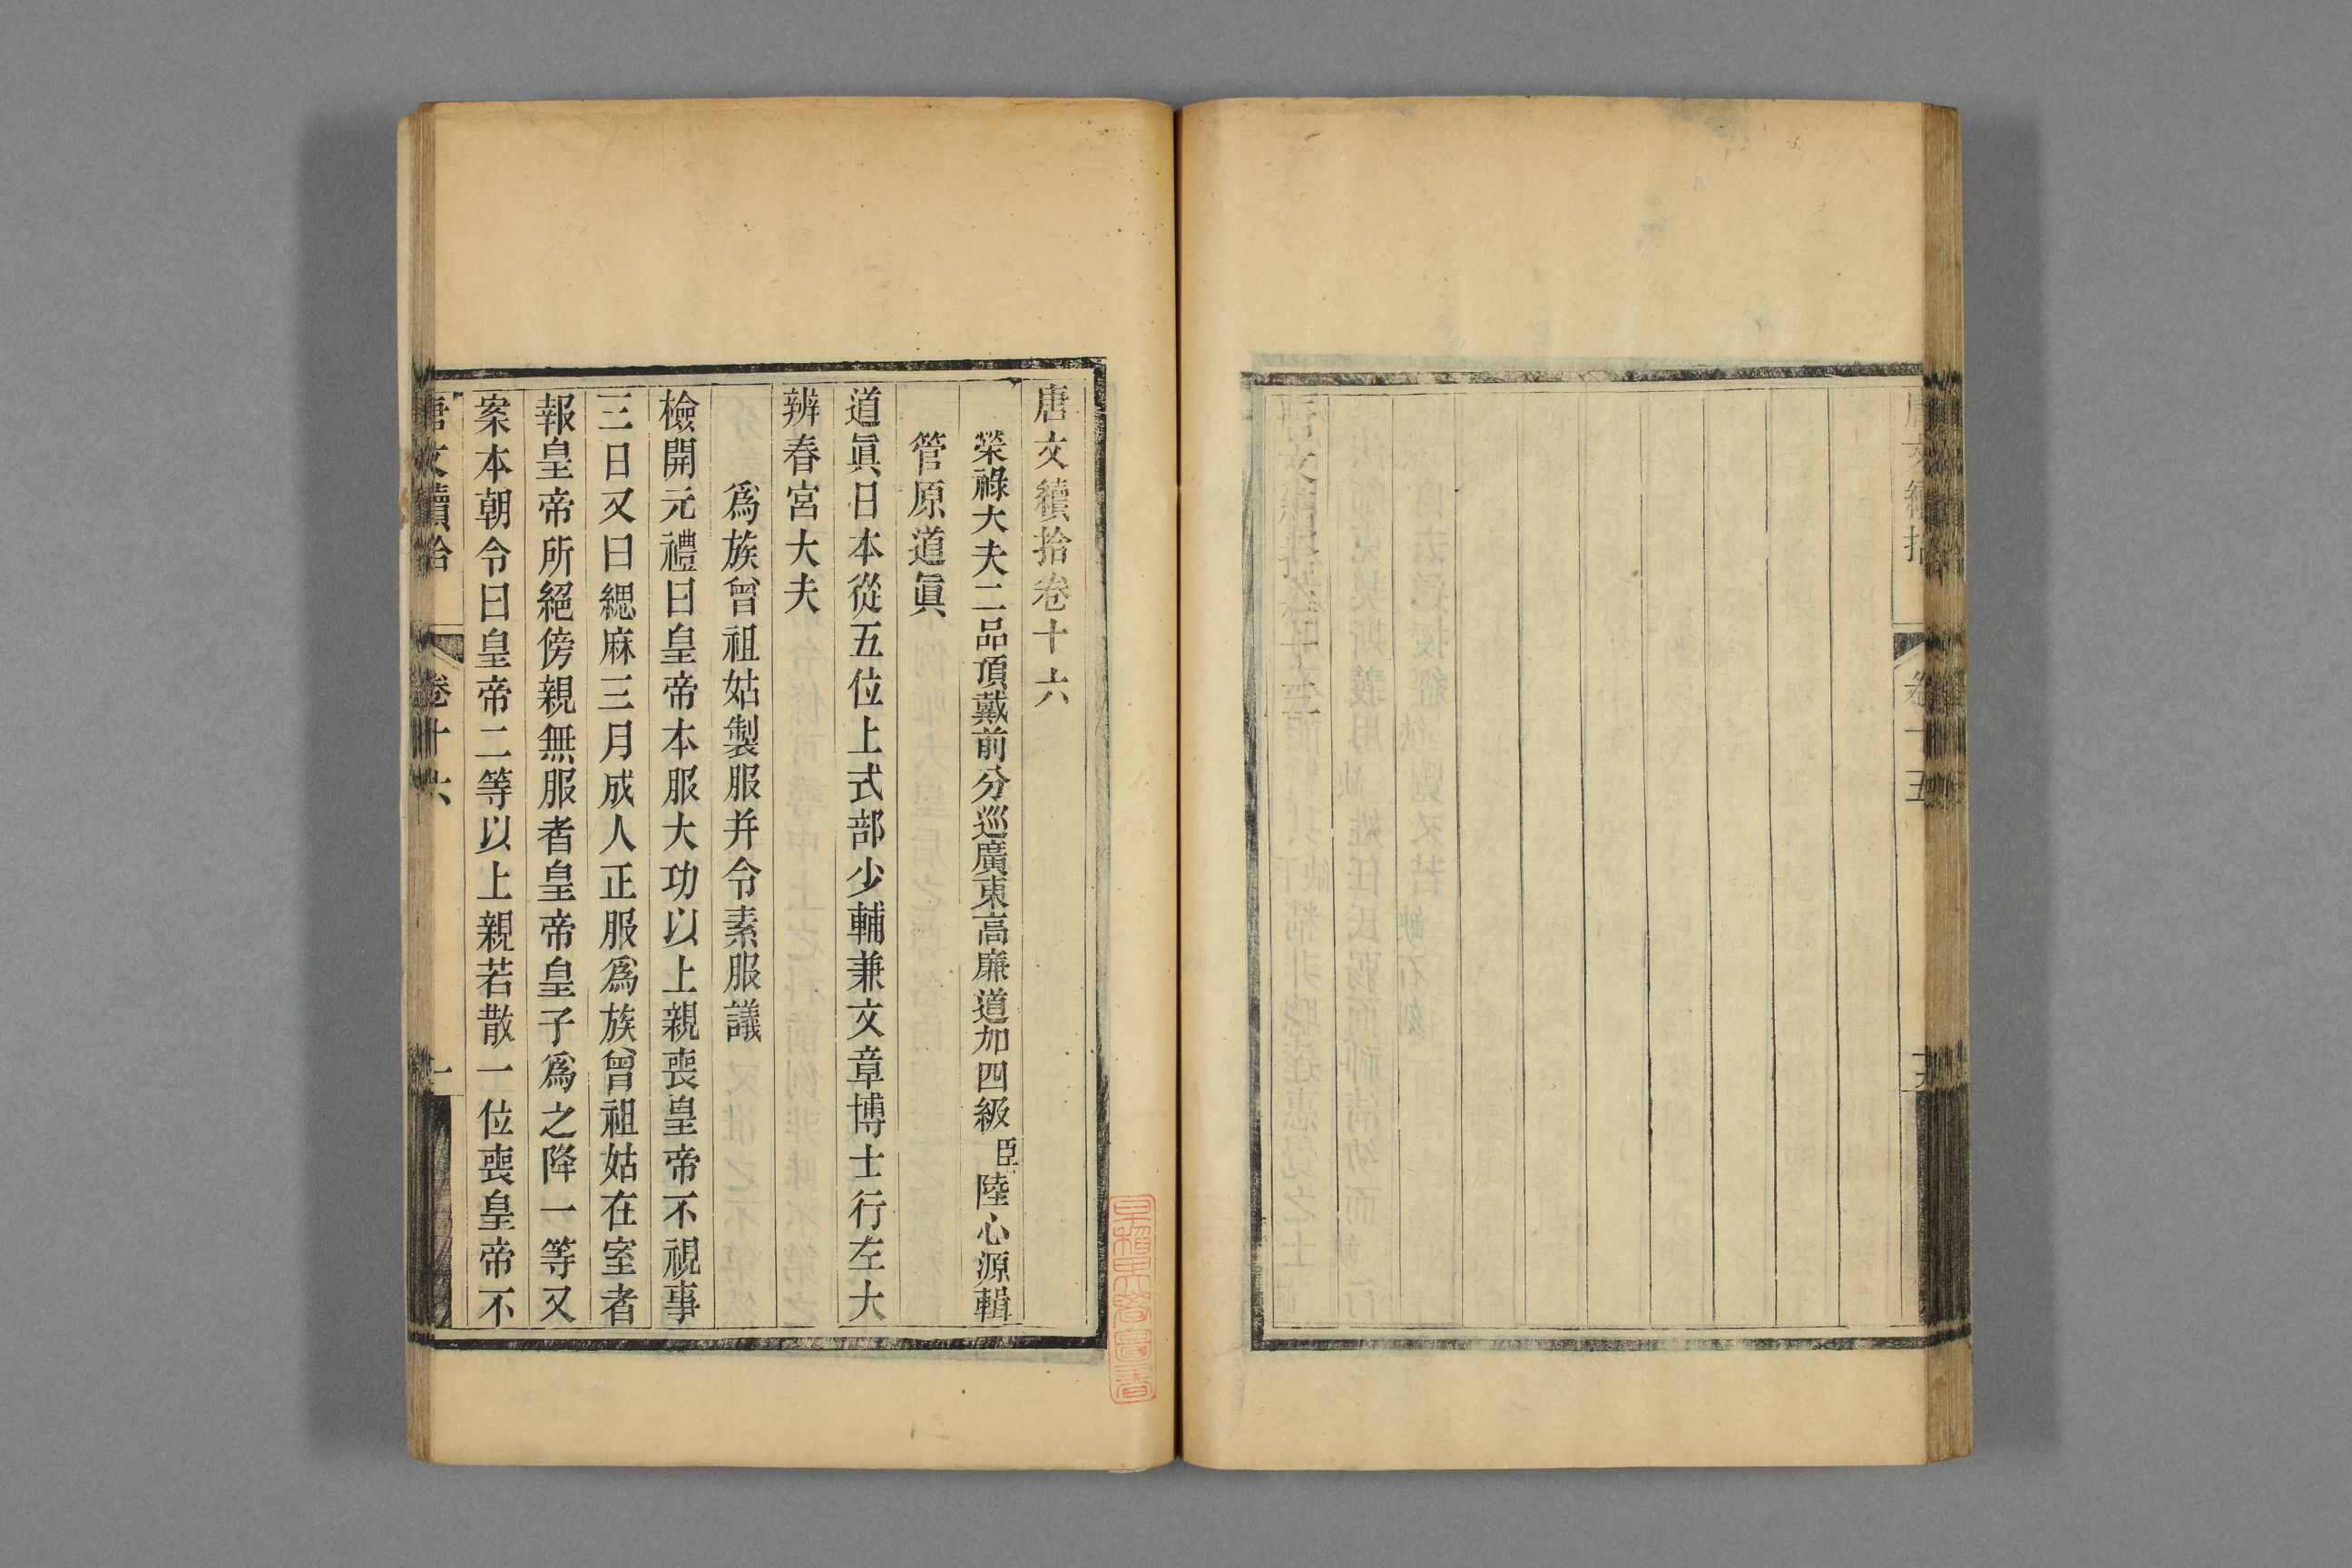 唐文續拾卷十六
榮祿大夫二品頂戴前分巡廣東高廉道加四級臣陸心源輯
管原道眞
道眞日本從五位上式部少輔兼文章博士行左大
辨春宮大夫
爲族曾祖姑製服并令素服議
檢開元禮曰皇帝本服大功以上親喪皇帝不視事
三日又曰緦麻三月成人正服爲族曾祖姑在室者
報皇帝所絕傍親無服者皇帝皇子爲之降一等又
案本朝令曰皇帝二等以上親若散一位喪皇帝不
唐文續拾
卷十六
一